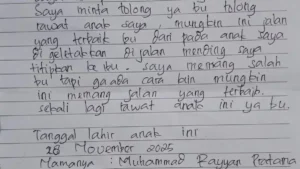 Saya minta tolong ya bu tolong
rawat anak saya, mungkin ini jalan
yang terbaik bu dari pada anak saya
di geletakan di jalan mending saya
titipkan ke ibu. saya memang salah
bu tapi ga ada cara lain mungkin
ini memang jalan yang terbaik.
sekali lagi rawat anak ini ya bu.
Tanggal lahir anak ini
November 2025
Mamanya : Muhammad Rayyan Pratama